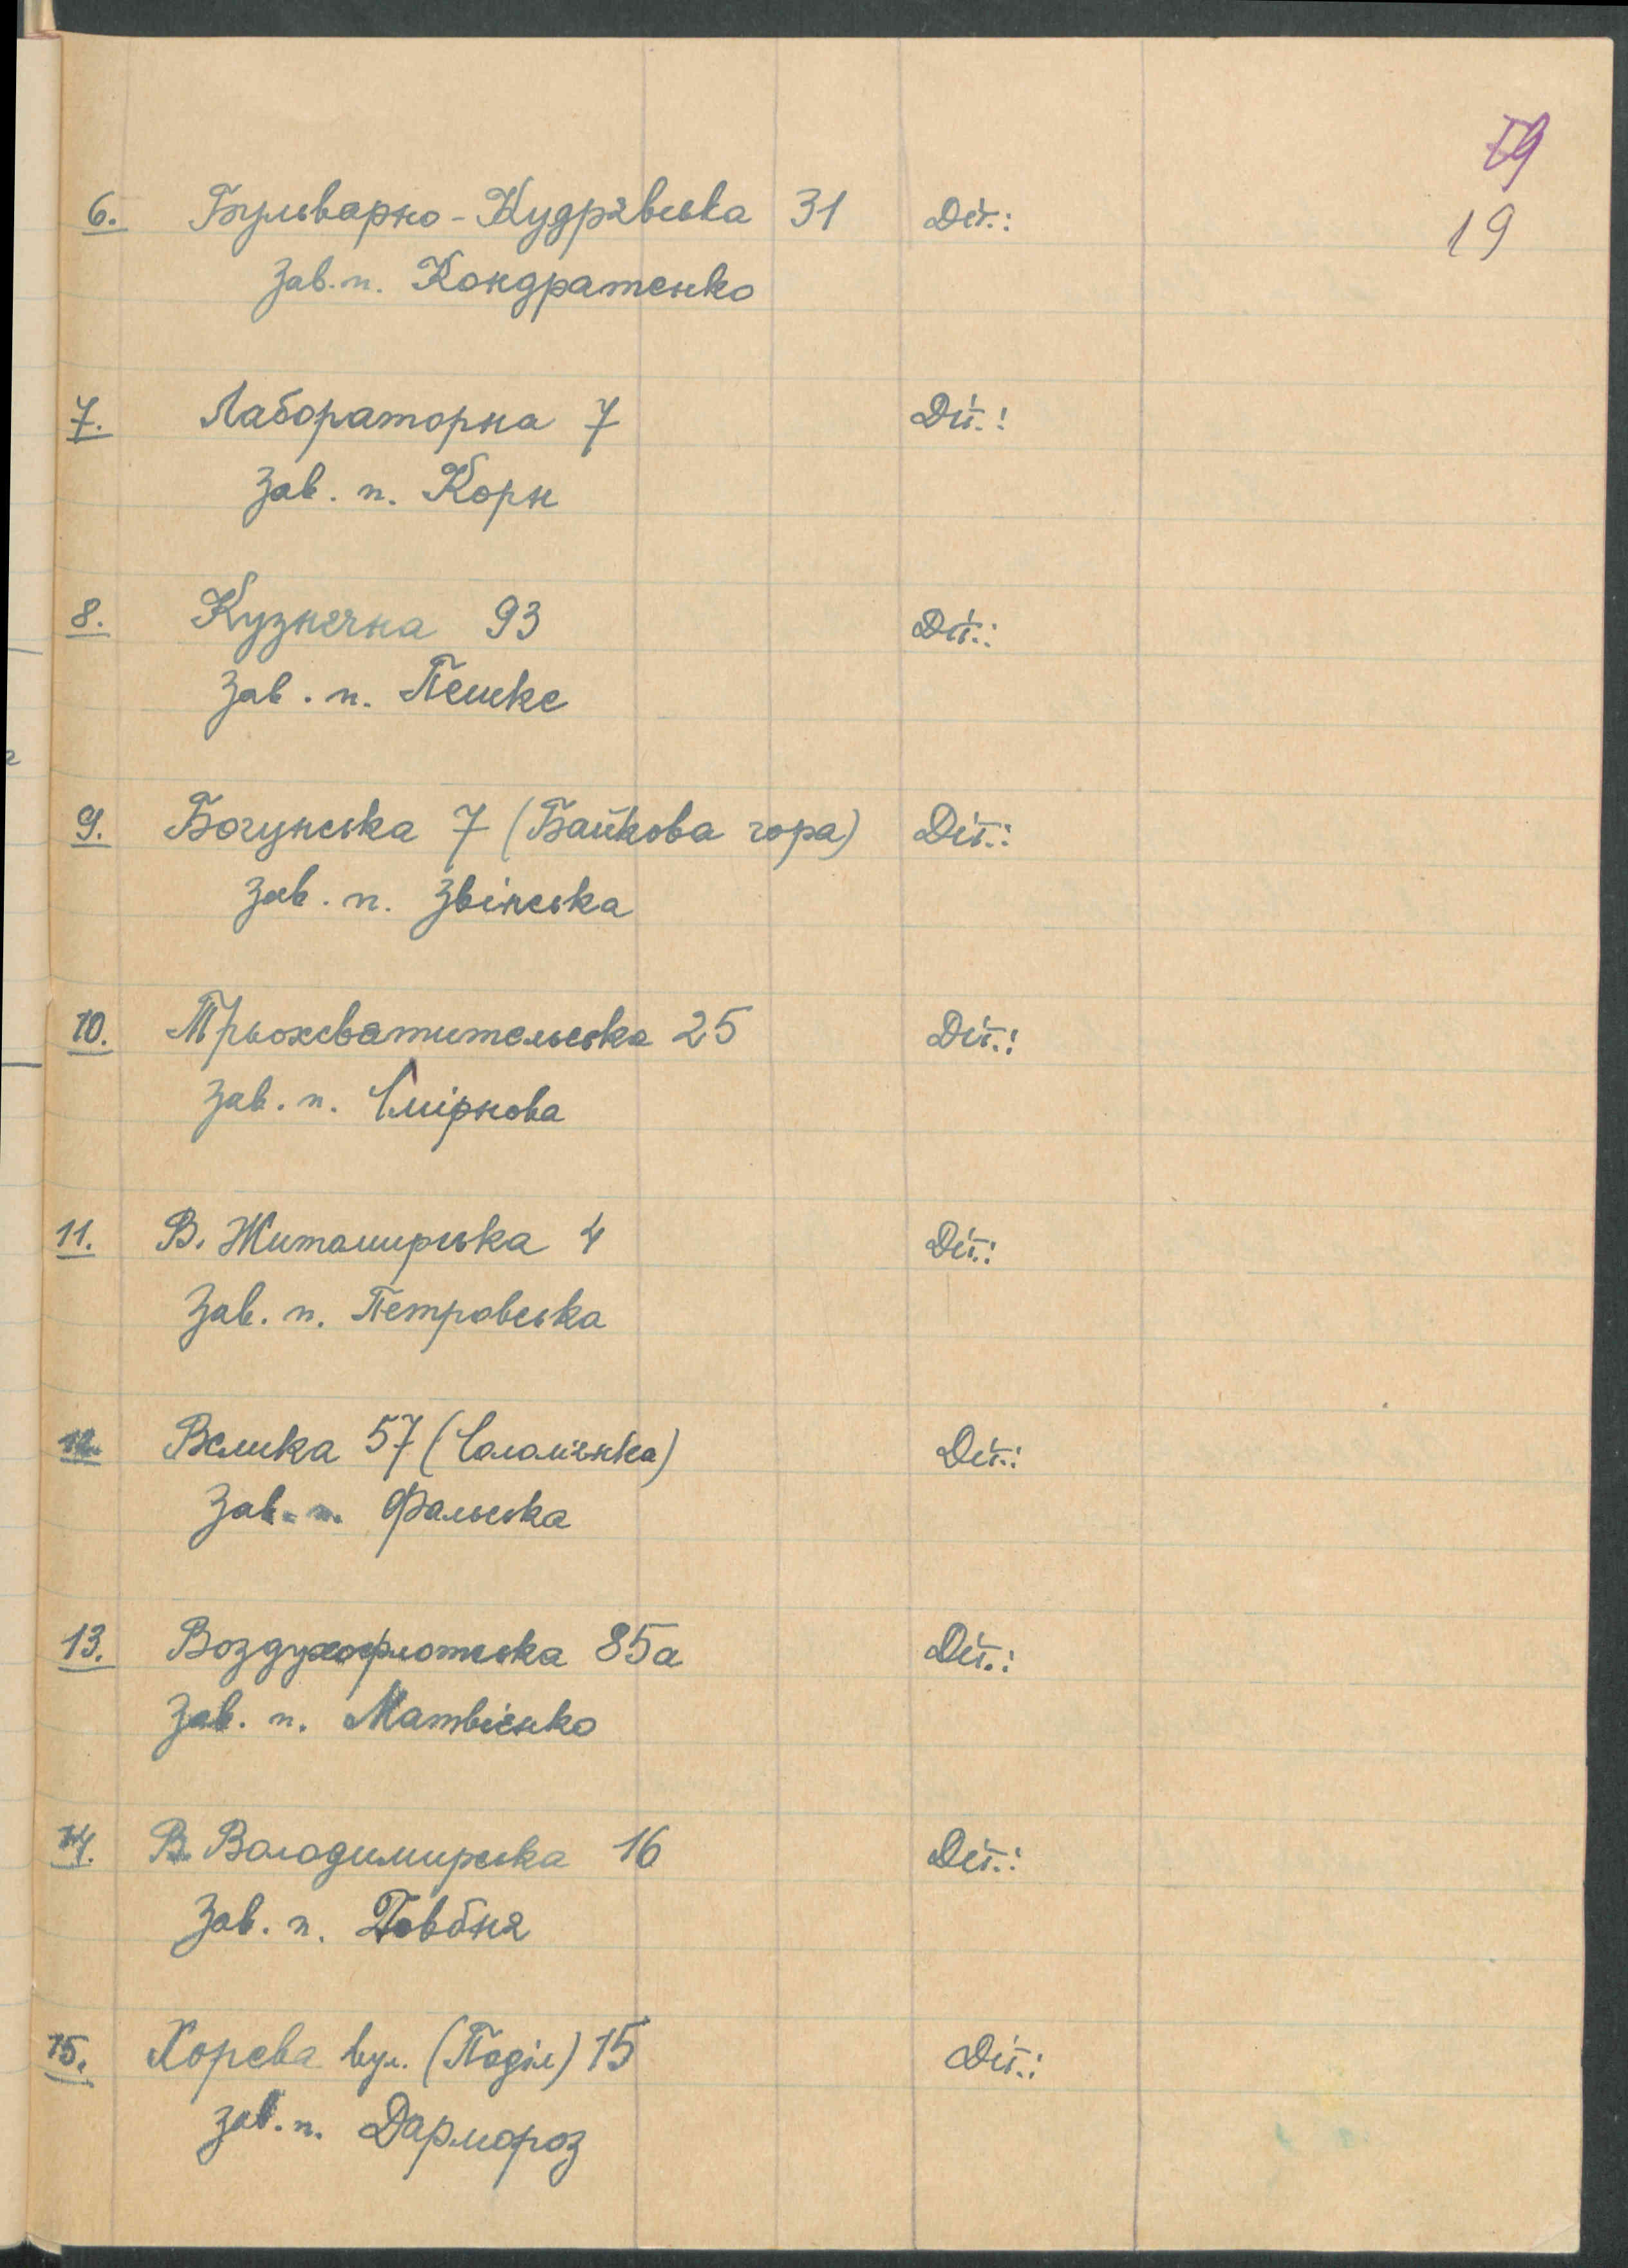 19
6. Бульварно-Кудрявська 31 Діт.:
Зав. п. Кондратенко
7. Лабораторна 7 Діт.:
Зав. п. Корн
8. Кузнечна 93 Діт.:
Зав. п. Пешке
9. Богунська 7 (Байкова гора) Діт.:
Зав. п. Звінська
10. Трьохсвятительська 25 Діт.:
Зав. п. Смірнова
11. В. Житомирська 4 Діт.:
Зав. п. Петровська
12. Велика 57 (Солом'янка) Діт.:
Зав. п. Фальська
13. Воздухофлотська 85а Діт.:
Зав. п. Матвієнко
14. В. Володимирська 16 Діт.:
Зав. п. Довбня
15. Хорева вул. (Поділ) 15 Діт.:
Зав. п. Дармороз